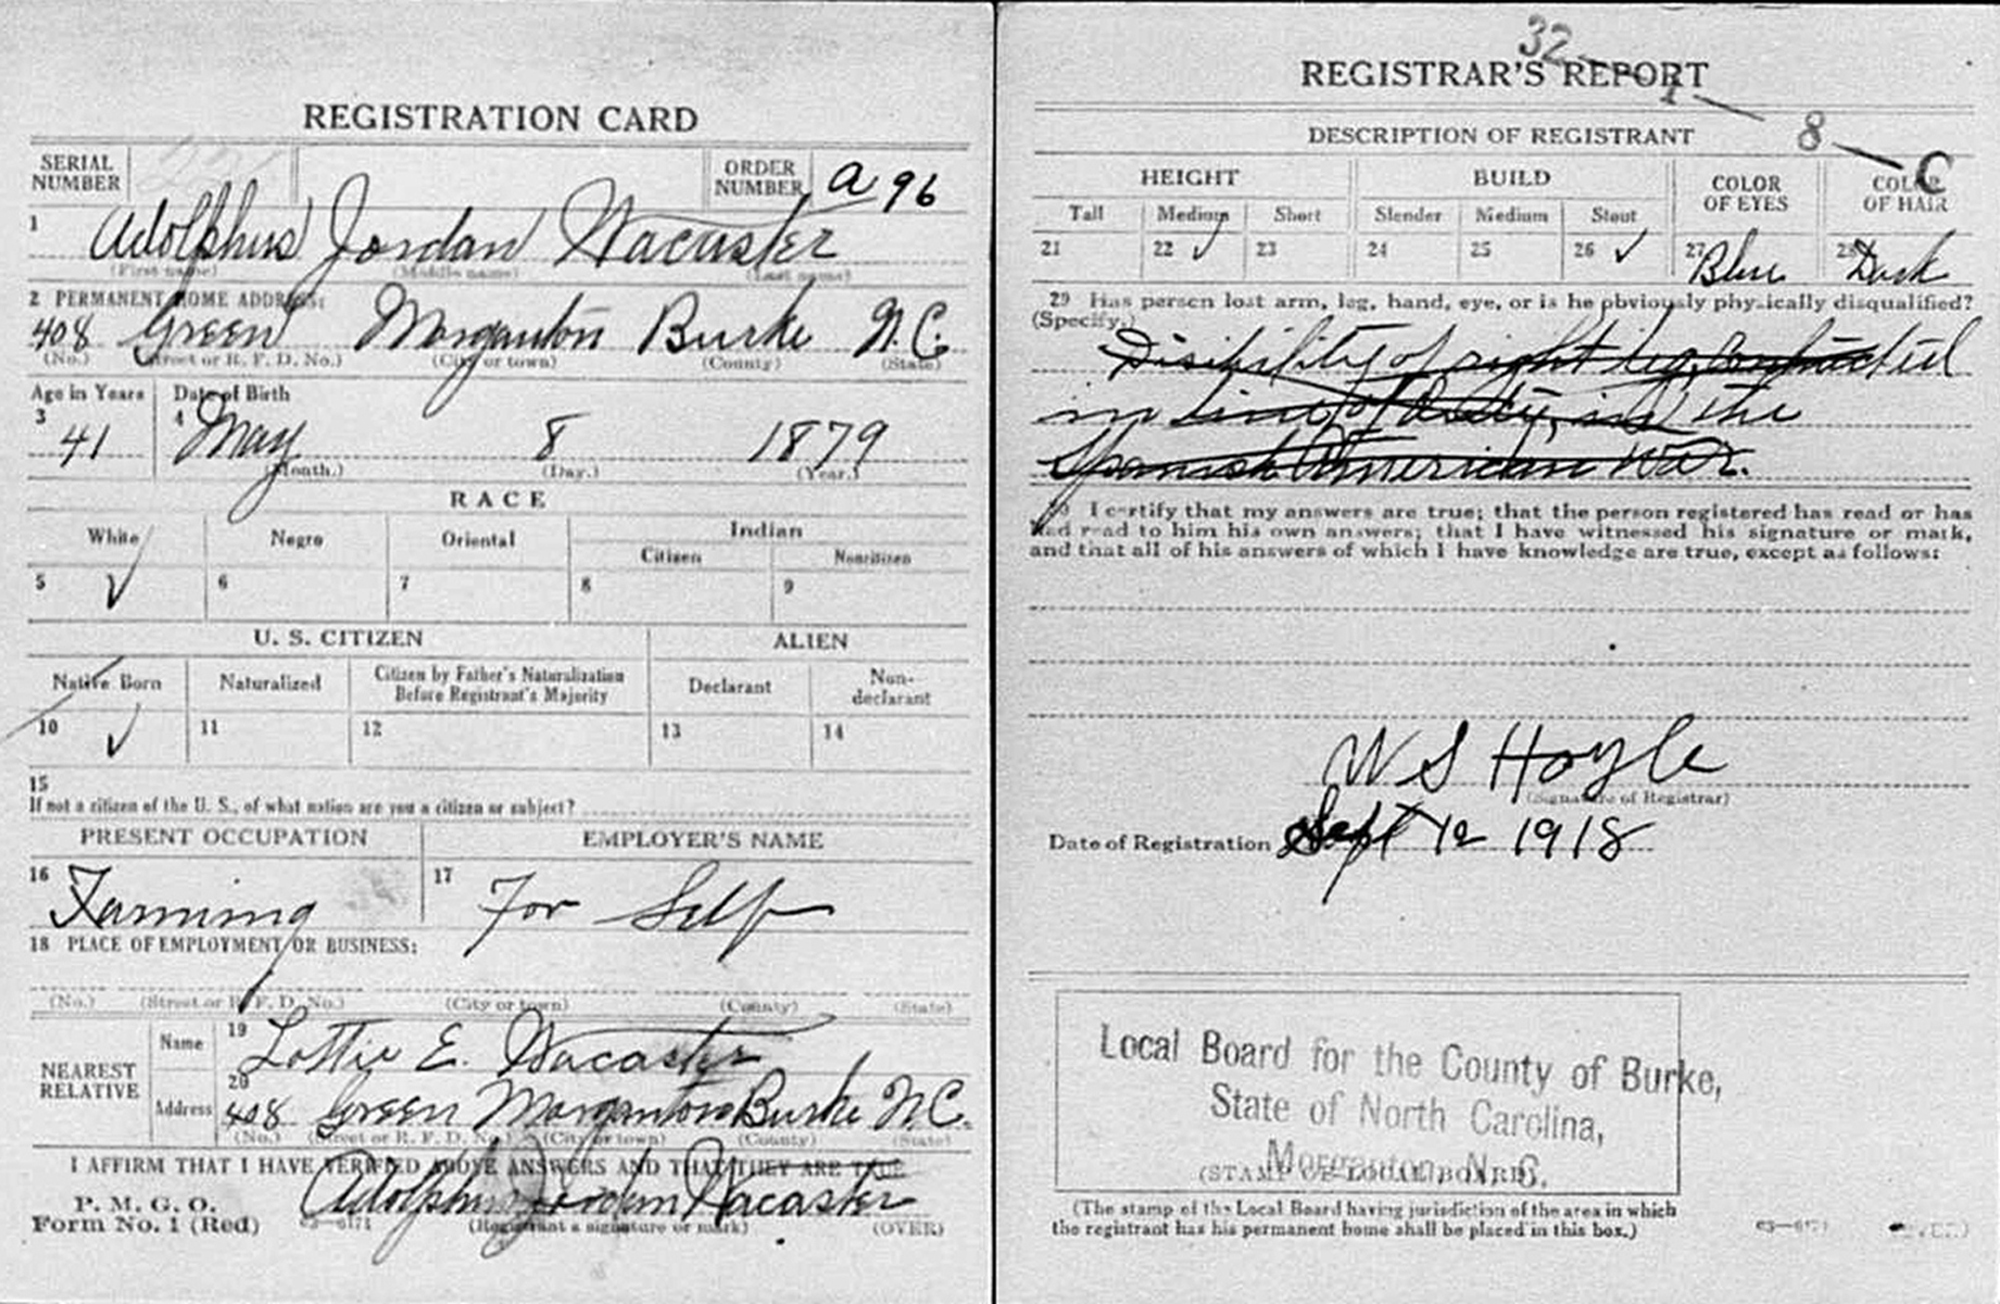 REGISTRATION CARD
SERIAL NUMBER
ORDER NUMBER a 96
1 Adolphus Jordan Wacaster
(First name) (Middle name) (Last name)
2 PERMANENT HOME ADDRESS:
408 Green Morganton Burke N.C.
(No.) (Street or R. F. D. No.) (City or town) (County) (State)
Age in Years Date of Birth
3 41 4 May 8 1879
(Month.) (Day.) (Year.)
RACE
White Negro Oriental Indian
Citizen Noncitizen
5 ✓ 6 7 8 9
U. S. CITIZEN ALIEN
Native Born Naturalized Citizen by Father's Naturalization Before Registrant's Majority Declarant Non-declarant
10 ✓ 11 12 13 14
15
If not a citizen of the U. S., of what nation are you a citizen or subject?
PRESENT OCCUPATION EMPLOYER'S NAME
16 Farming 17 For Self
18 PLACE OF EMPLOYMENT OR BUSINESS:
(No.) (Street or R. F. D. No.) (City or town) (County) (State)
NEAREST RELATIVE
Name 19 Lottie E. Wacaster
Address 20 408 Green Morganton Burke N.C.
(No.) (Street or R. F. D. No.) (City or town) (County) (State)
I AFFIRM THAT I HAVE VERIFIED ABOVE ANSWERS AND THAT THEY ARE TRUE
P. M. G. O.
Form No. 1 (Red) 03—6171 Adolphus Jordan Wacaster
(Registrant's signature or mark) (OVER)
32 — 1 — 8 — C
REGISTRAR'S REPORT
DESCRIPTION OF REGISTRANT
HEIGHT BUILD COLOR OF EYES COLOR OF HAIR
Tall Medium Short Slender Medium Stout
21 22 ✓ 23 24 25 26 ✓ 27 Blue 28 Dark
29 Has person lost arm, leg, hand, eye, or is he obviously physically disqualified?
(Specify.)
Disibility of right leg Contracted
in line of duty, in the
Spanish American War.
30 I certify that my answers are true; that the person registered has read or has
had read to him his own answers; that I have witnessed his signature or mark,
and that all of his answers of which I have knowledge are true, except as follows:
W S Hoyle
(Signature of Registrar)
Date of Registration Sept 12 1918
Local Board for the County of Burke,
State of North Carolina,
Morganton, N. C.
(STAMP OF LOCAL BOARD)
(The stamp of the Local Board having jurisdiction of the area in which
the registrant has his permanent home shall be placed in this box.)
03—6171